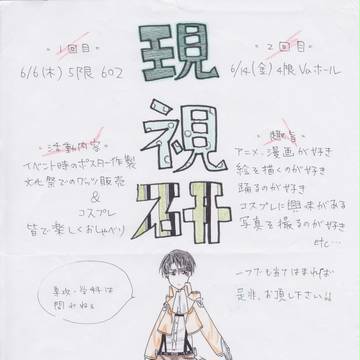 現視研
◦1回目◦
6/6(木) 5限 602
◦2回目◦
6/14(金) 4限 Vaホール
◦活動内容◦
イベント時のポスター作製
文化祭でのグッズ販売
&
コスプレ
皆で楽しくおしゃべり
◦趣旨◦
アニメ・漫画が好き
絵を描くのが好き
踊るのが好き
コスプレに興味がある
写真を撮るのが好き
etc…
専攻・学科は
問わねぇ
一つでも当てはまれば
是非、お越し下さい